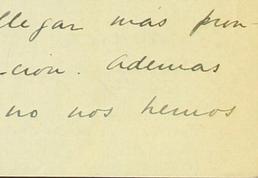 llegar más pron-
-ción. Ademas
no nos hemos